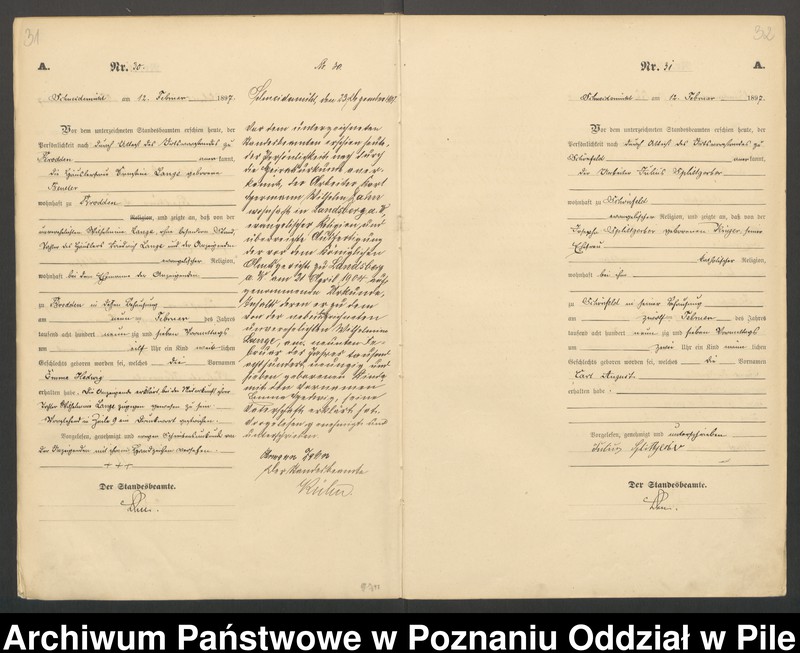 31
A.
Nr. 30.
Schneidemühl am 12. Februar 1897.
Vor dem unterzeichneten Standesbeamten erschien heute, der
Persönlichkeit nach durch Attest des Ortsvorstandes zu
Brodden kannt,
die Häuslerfrau Lange geborene
wohnhaft zu Brodden
Religion, und zeigte an, daß von der
unverehelichten Wilhelmine Lange,
Tochter des Häuslers Friedrich Lange und der Anzeigenden
evangelischer Religion,
wohnhaft bei dem Ehemanne der Anzeigenden
zu Brodden in Behausung
am neunten Februar des Jahres
tausend acht hundert neunzig und sieben Vormittags
um elf Uhr ein Kind weiblichen
Geschlechts geboren worden sei, welches die Vornamen
Emma Hedwig
erhalten habe. Die Anzeigende erklärt, bei der Niederkunft ihrer
Tochter Wilhelmine Lange zugegen gewesen zu sein.
Vorstehend in Zeile 9 ein Druckwort gestrichen.
Vorgelesen, genehmigt und wegen Schreibensunkunde von
der Anzeigenden mit ihrem Handzeichen versehen.
+++
Der Standesbeamte.
Nr. 30.
Schneidemühl, den 23.
Vor dem unterzeichneten
Standesbeamten erschien heute,
der Persönlichkeit nach durch
die Heiratsurkunde aner-
kannt, der Arbeiter Karl
Hermann Wilhelm Zahn
wohnhaft in Landsberg a. W.,
evangelischer Religion, und
überreichte Ausfertigung
der vor dem Königlichen
Amtsgerichte zu Landsberg
a W. am 21 April 1904 auf-
genommene Urkunde,
Inhalts deren er zu dem
von der nebenbezeichneten
unverehelichten Wilhelmine
Lange, am neunten Fe-
bruar des Jahres tausend
achthundert neunzig und
sieben geborenen Kinde
mit den Vornamen
Emma Hedwig, seine
Vaterschaft erklärt hat.
Vorgelesen, genehmigt und
unterschrieben
Hermann Zahn
Der Standesbeamte
32
Nr. 31
A.
Schneidemühl am 12. Februar 1897.
Vor dem unterzeichneten Standesbeamten erschien heute, der
Persönlichkeit nach durch Attest des Ortsvorstandes zu
Schönfeld kannt,
der Arbeiter Julius Splittgerber
wohnhaft zu Schönfeld
evangelischer Religion, und zeigte an, daß von der
Splittgerber geborenen Krüger, seiner
Ehefrau
katholischer Religion,
wohnhaft bei ihm
zu Schönfeld in seiner Behausung
am zwölften Februar des Jahres
tausend acht hundert neunzig und sieben Vormittags
um zwei Uhr ein Kind männlichen
Geschlechts geboren worden sei, welches die Vornamen
Carl August
erhalten habe.
Vorgelesen, genehmigt und unterschrieben
Julius Splittgerber
Der Standesbeamte.
Archiwum Państwowe w Poznaniu Oddział w Pile